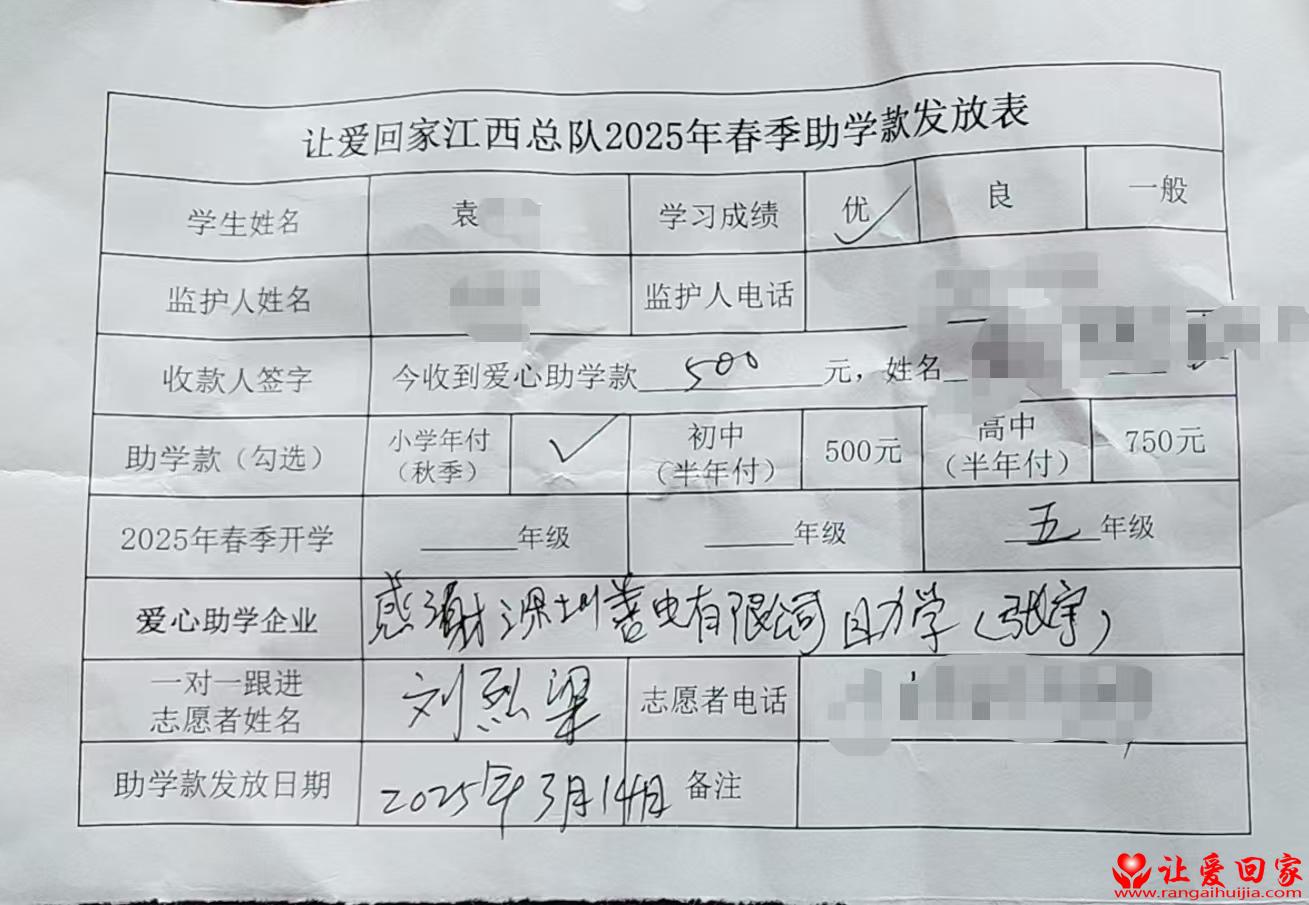 让爱回家江西总队2025年春季助学款发放表
学生姓名 袁 学习成绩 优 ✓ 良 一般
监护人姓名 监护人电话
收款人签字 今收到爱心助学款 500 元，姓名
助学款（勾选） 小学年付（秋季） ✓ 初中（半年付） 500元 高中（半年付） 750元
2025年春季开学 ____年级 ____年级 五 年级
爱心助学企业 感谢深圳善电有限公司助学（张宇）
一对一跟进志愿者姓名 刘烈梁 志愿者电话
助学款发放日期 2025年3月14日 备注
让爱回家
www.rangaihuijia.com